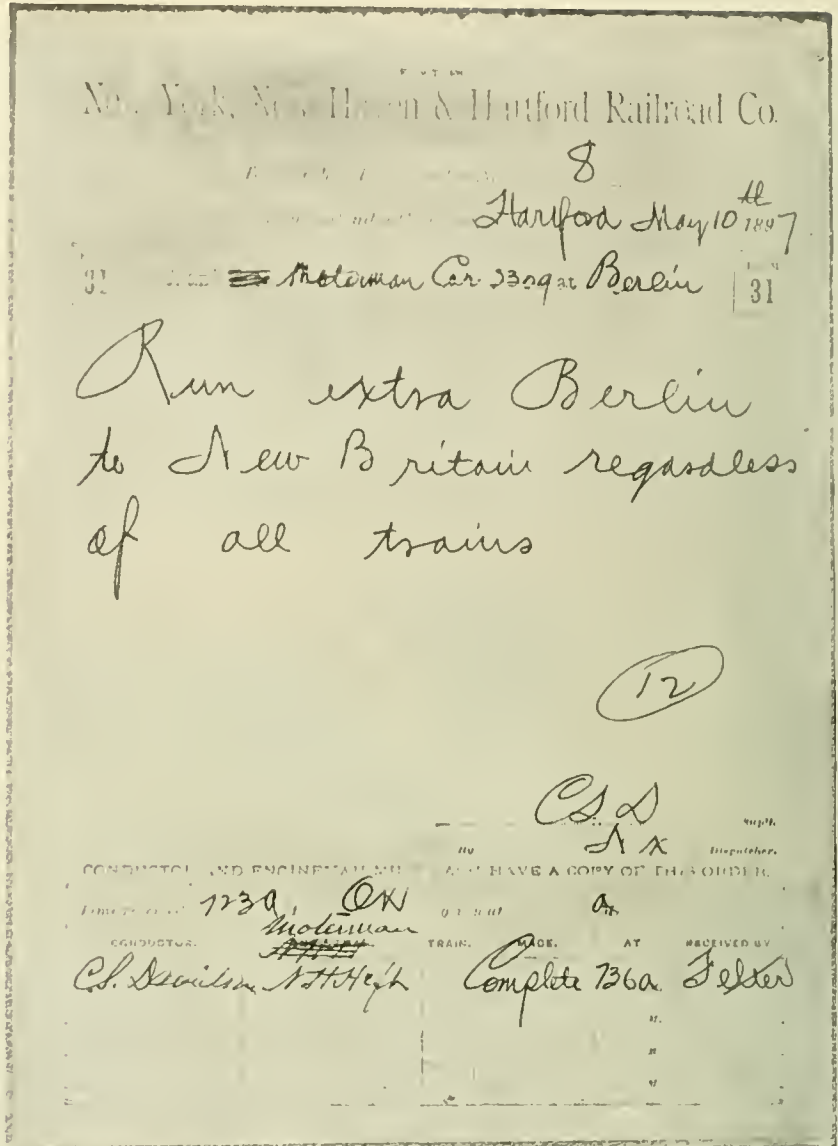 New York, New Haven & Hartford Railroad Co.
8
Hartford May 10th 1897
31 Motorman Car 2309 at Berlin 31
Run extra Berlin
to New Britain regardless
of all trains
12
CSD Supt.
By NX Dispatcher.
CONDUCTOR AND ENGINEMAN MUST HAVE A COPY OF THIS ORDER.
723a OK a
Motorman
CONDUCTOR. TRAIN. MADE. AT RECEIVED BY
C.S. Davidson Complete 736a Felter
M.
M
M